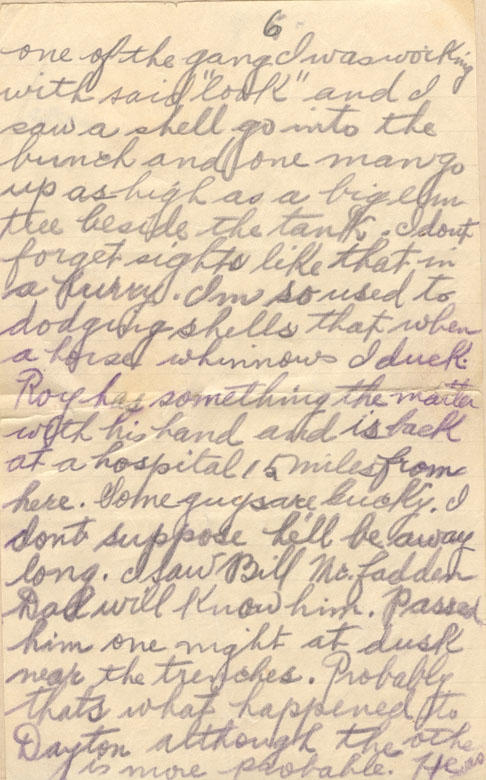 6
one of the gang I was working
with said "look" and I
saw a shell go into the
bunch and one man go
up as high as a big elm
tree beside the tank. I dont
forget sights like that in
a hurry. Im so used to
dodging shells that when
a horse whinnows I duck.
Roy has something the matter
with his hand and is back
at a hospital 15 miles from
here. Some guys are lucky. I
dont suppose he'll be away
long. I saw Bill McFadden
Dad will know him. Passed
him one night at dusk
near the trenches. Probably
thats what happened to
Dayton although the other
is more probable. He was